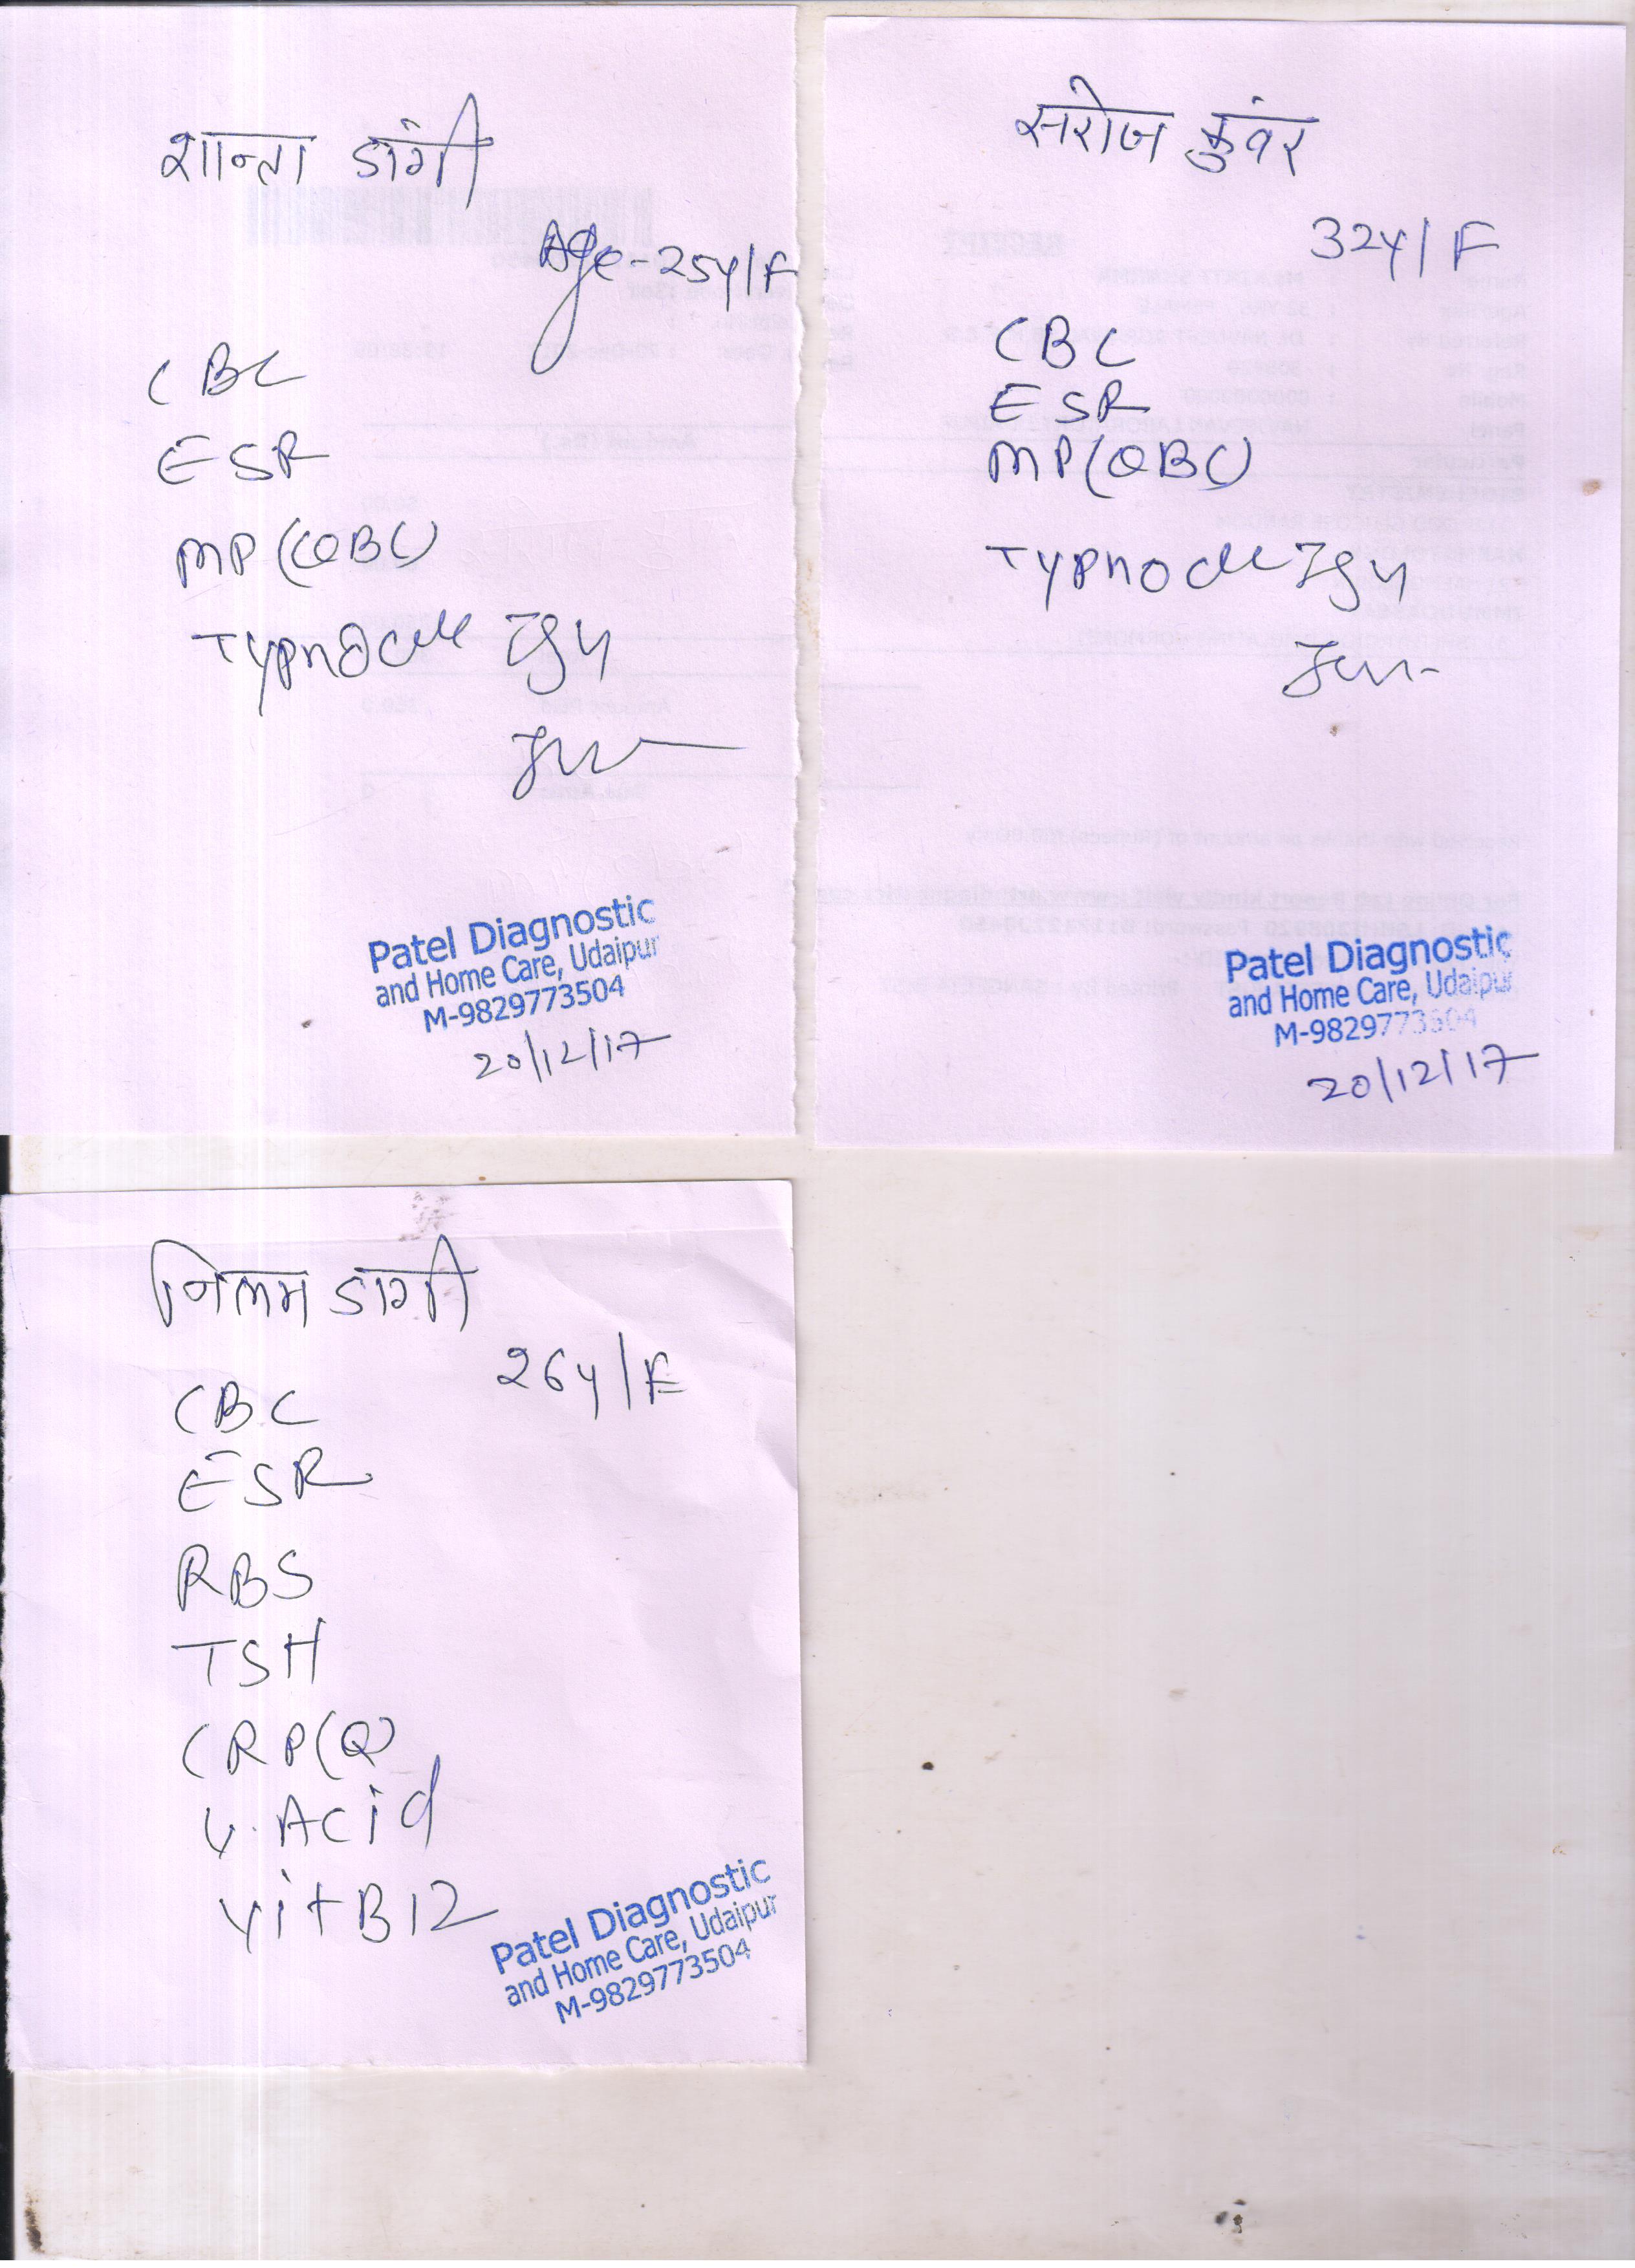 शान्ता डांगी
Age-25y/F
CBC
ESR
MP(QBC)
Typhodot IgM
Patel Diagnostic
and Home Care, Udaipur
M-9829773504
20/12/17
सरोज कुंवर
32y/F
CBC
ESR
MP(QBC)
Typhodot IgM
Patel Diagnostic
and Home Care, Udaipur
M-9829773504
20/12/17
निलम डांगी
26y/F
CBC
ESR
RBS
TSH
CRP(Q)
U.Acid
VitB12
Patel Diagnostic
and Home Care, Udaipur
M-9829773504